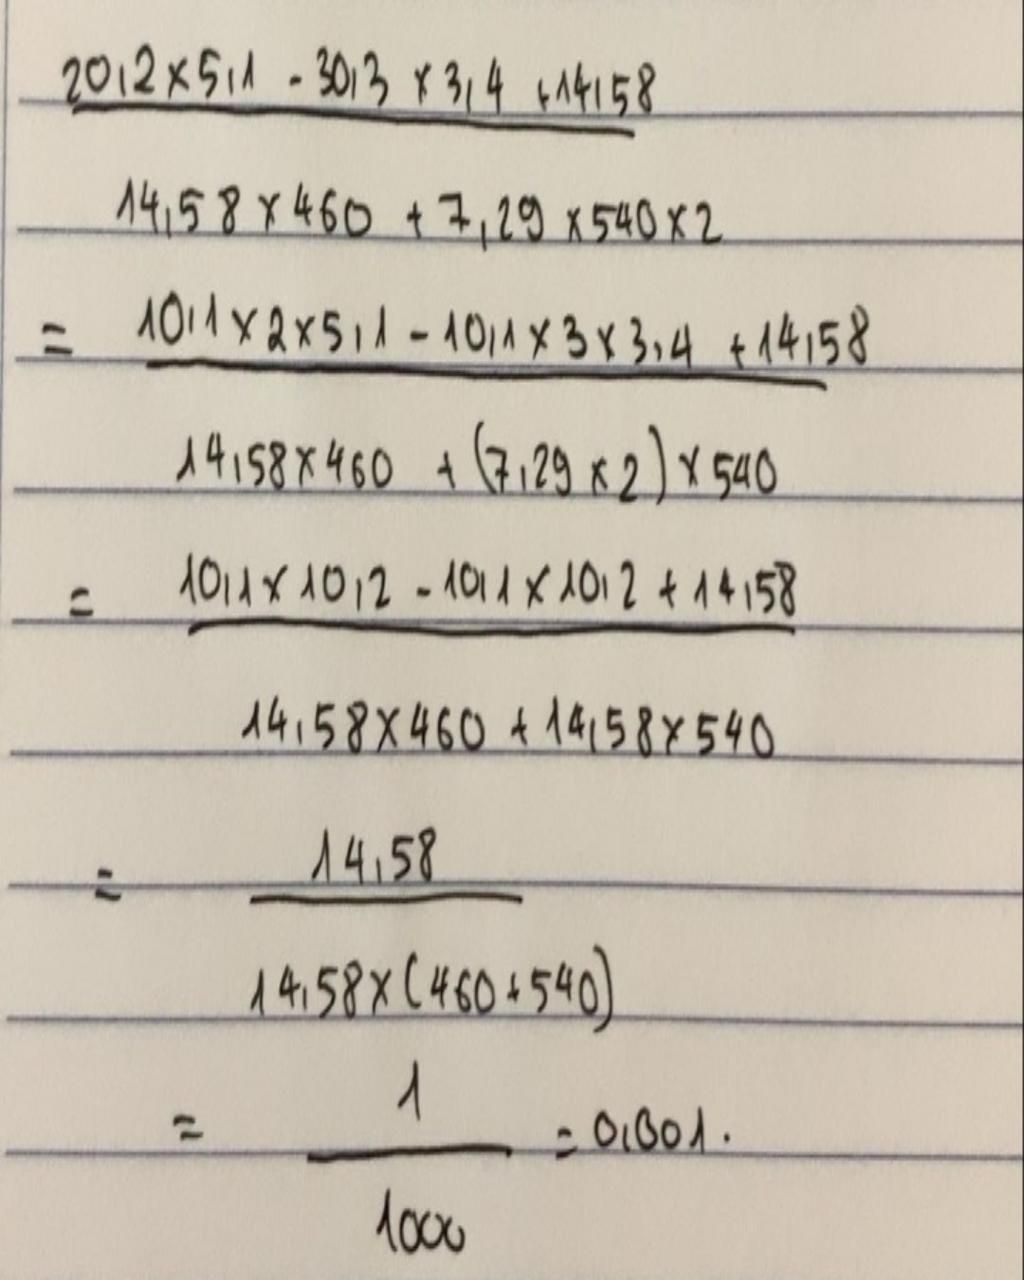 20,2 × 5,1 - 30,3 × 3,4 + 14,58
14,58 × 460 + 7,29 × 540 × 2
= 10,1 × 2 × 5,1 - 10,1 × 3 × 3,4 + 14,58
14,58 × 460 + (7,29 × 2) × 540
= 10,1 × 10,2 - 10,1 × 10,2 + 14,58
14,58 × 460 + 14,58 × 540
= 14,58
14,58 × (460 + 540)
= 1 = 0,001.
1000